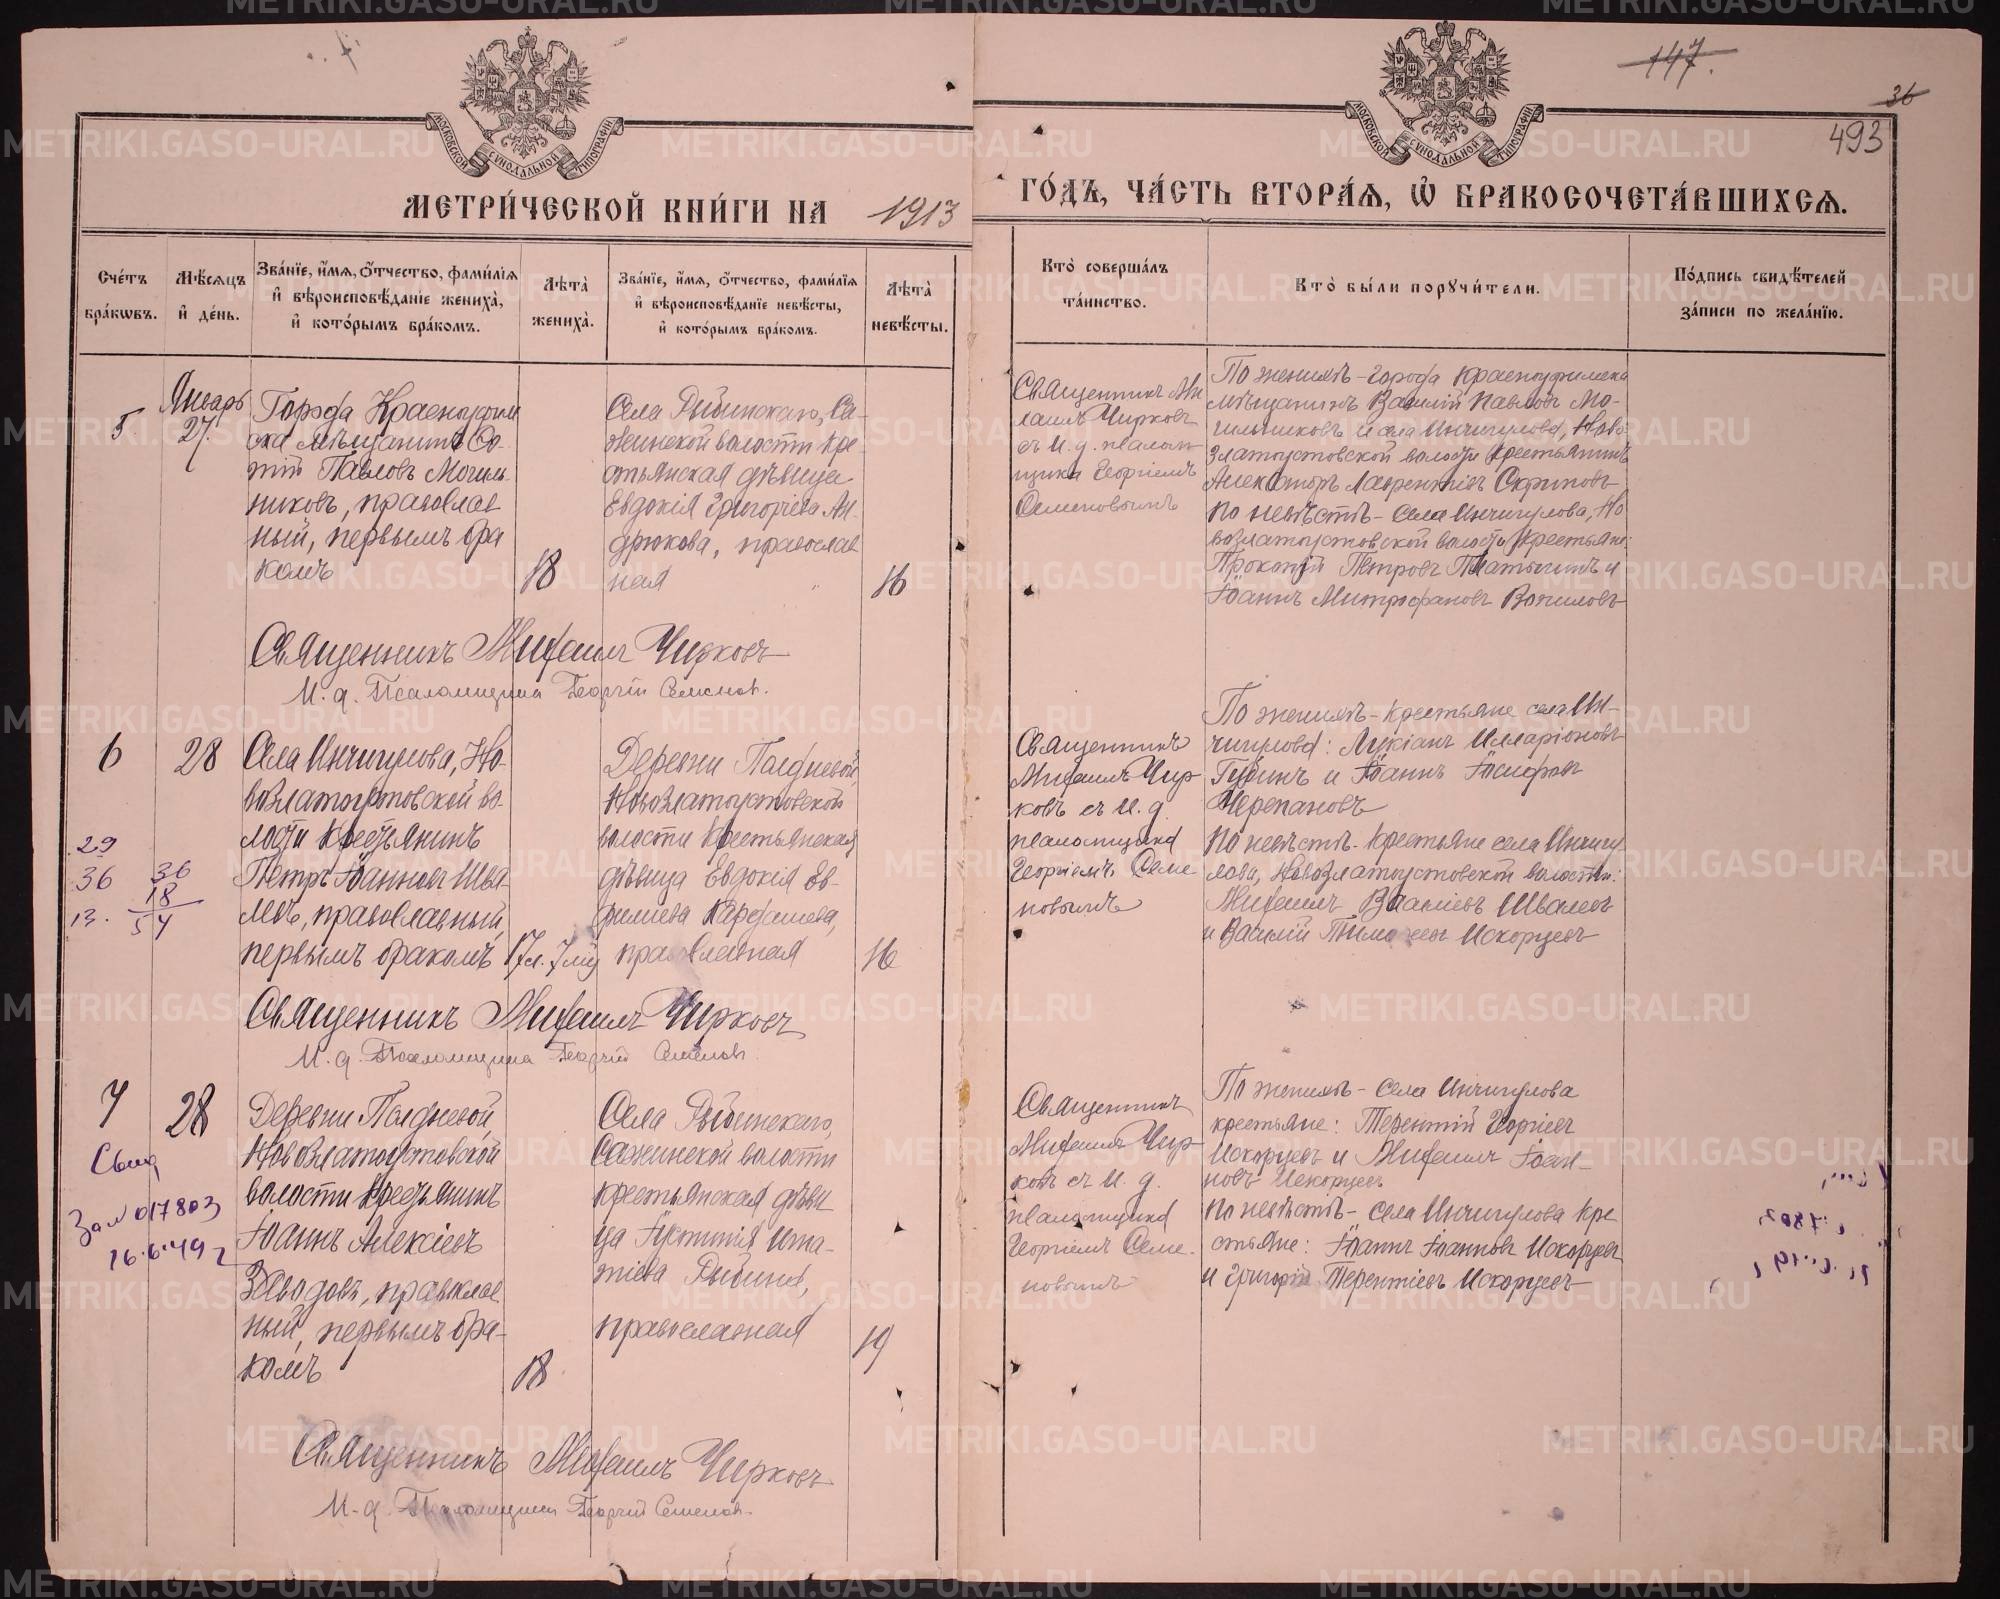 147.
36
493
МОСКОВСКОЙ СУНОДАЛЬНОЙ ТИПОГРАФІИ
МОСКОВСКОЙ СУНОДАЛЬНОЙ ТИПОГРАФІИ
МЕТРИ́ЧЕСКОЙ КНИ́ГИ НА 1913 ГО́ДЪ, ЧА́СТЬ ВТОРА́Я, Ѡ БРАКОСОЧЕТА́ВШИХСЯ.
Сче́тъ бра́кωвъ.
Мѣ́сяцъ и҆ де́нь.
Зва́нїе, и҆́мя, ѻ҆́тчество, фами́лїя и҆ вѣроисповѣ́данїе жениха̀, и҆ кото́рымъ бра́комъ.
Лѣ́та̀ жениха̀.
Зва́нїе, и҆́мя, ѻ҆́тчество, фами́лїя и҆ вѣроисповѣ́данїе невѣ́сты, и҆ кото́рымъ бра́комъ.
Лѣ́та̀ невѣ́сты.
Кто̀ соверша́лъ та́инство.
Кто̀ бы́ли порꙋчи́тели.
По́дпись свидѣ́телей за́писи по жела́нїю.
5
Январь
27.
Города Красноуфим
ска мѣщанинъ Фо-
тій Павловъ Могиль-
никовъ, православ
ный, первымъ бра
комъ
18
Села Рыбинскаго, Са-
жинской волости кре-
стьянская дѣвица
Евдокія Григоріева Ан-
дрюкова, православ
ная
16
Священникъ Ми
хаилъ Чирковъ
съ И. д. псалом
щика Георгіемъ
Семеновымъ
По женихѣ - города Красноуфимска
мѣщанинъ Василій Павловъ Мо-
гильниковъ и села Инчигулова, Ново
златоустовской волости крестьянинъ
Александръ Лаврентіевъ Скриповъ
По невѣстѣ - Села Инчигулова, Но
возлатоустовской волости крестьяне:
Прокопій Петровъ и
Іоаннъ Митрофановъ
Священникъ Михаилъ Чирковъ
И. д. Псаломщика Георгій Семенов.
6
28
29
36
13.
36
18
54
Села Инчигулова, Но-
возлатоустовской во-
лости крестьянинъ
Петръ Іоанновъ Шва-
левъ, православный,
первымъ бракомъ
17 л. 7 мц
Деревни Полдневой,
Новозлатоустовской
волости крестьянская
дѣвица Евдокія Ев-
фиміева Карфашева,
православная
16
Священникъ
Михаилъ Чир-
ковъ съ И. д.
псаломщика
Георгіемъ Семе
новымъ
По женихѣ - крестьяне села Ин-
чигулова: Лукіанъ Илларіоновъ
Губинъ и Іоаннъ Іосифовъ
Черепановъ
По невѣстѣ - крестьяне села Инчигу
лова, Новозлатоустовской волости:
Михаилъ Васильевъ Швалевъ
и Василій Искорцевъ
Священникъ Михаилъ Чирковъ
И. д. Псаломщика Георгій Семенов.
7
28
Свид
За № 017803
16.6.49 г
Деревни Полдневой,
Новозлатоустовской
волости крестьянинъ
Іоаннъ Алексіевъ
Заводовъ, православ
ный, первымъ бра-
комъ
18
Села Рыбинскаго,
Сажинской волости
крестьянская дѣви
ца Іустинія Игна-
тіева Рыбина,
православная
19
Священникъ
Михаилъ Чир-
ковъ съ И. д.
псаломщика
Георгіемъ Семе-
новымъ
По женихѣ - села Инчигулова
крестьяне: Терентій Георгіевъ
Искорцевъ и Михаилъ Іоан-
новъ Искорцевъ
По невѣстѣ - села Инчигулова кре
стьяне: Іоаннъ Іоанновъ Искорцевъ
и Григорій Терентіевъ Искорцевъ
Священникъ Михаилъ Чирковъ
И. д. Псаломщика Георгій Семенов.
METRIKI.GASO-URAL.RU